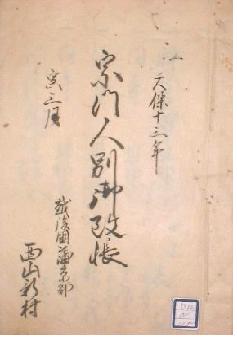 天保十三年
宗門人別御改帳
寅三月
越後國蒲原郡
西山新村